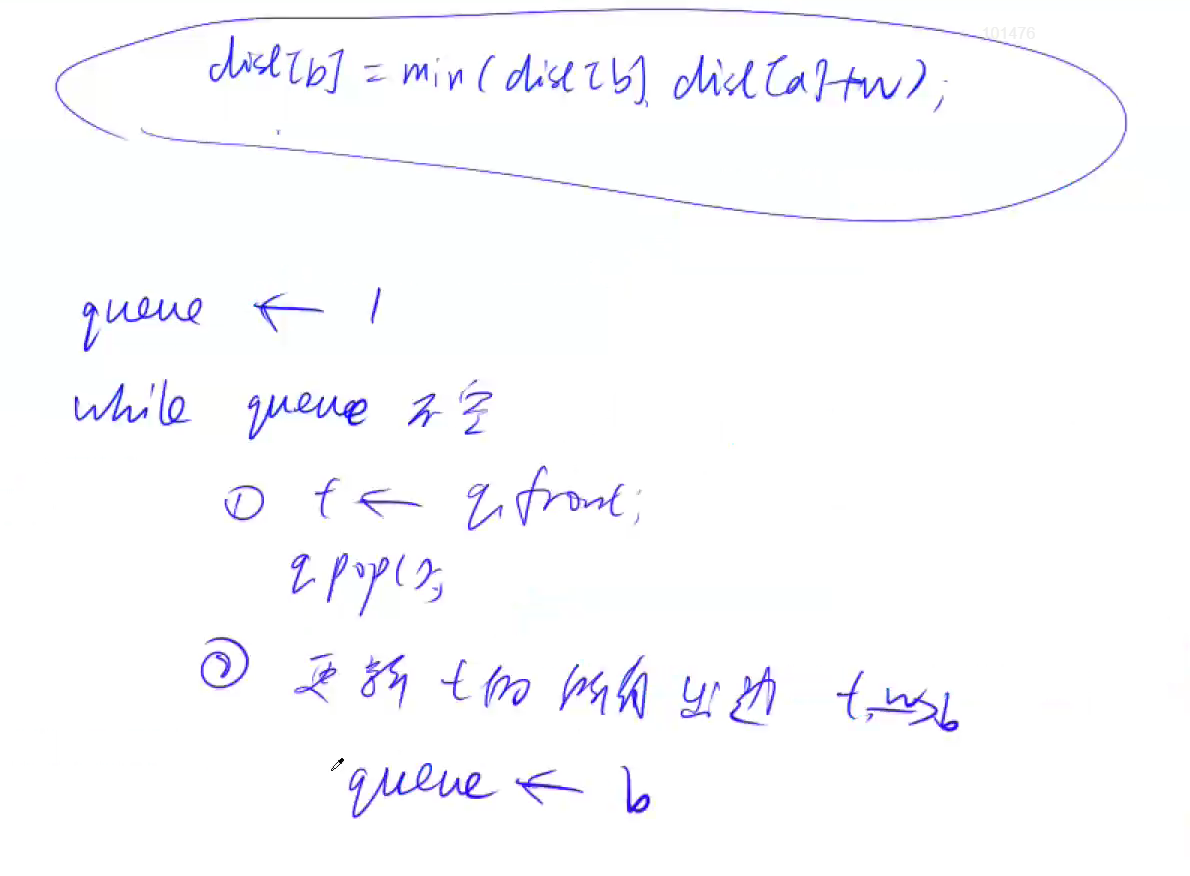 101476
dist[b] = min(dist[b], dist[a]+w);
queue ← 1
while queue 不空
① t ← q.front;
q.pop();
② 更新 t 的所有出边 t, w→b
queue ← b